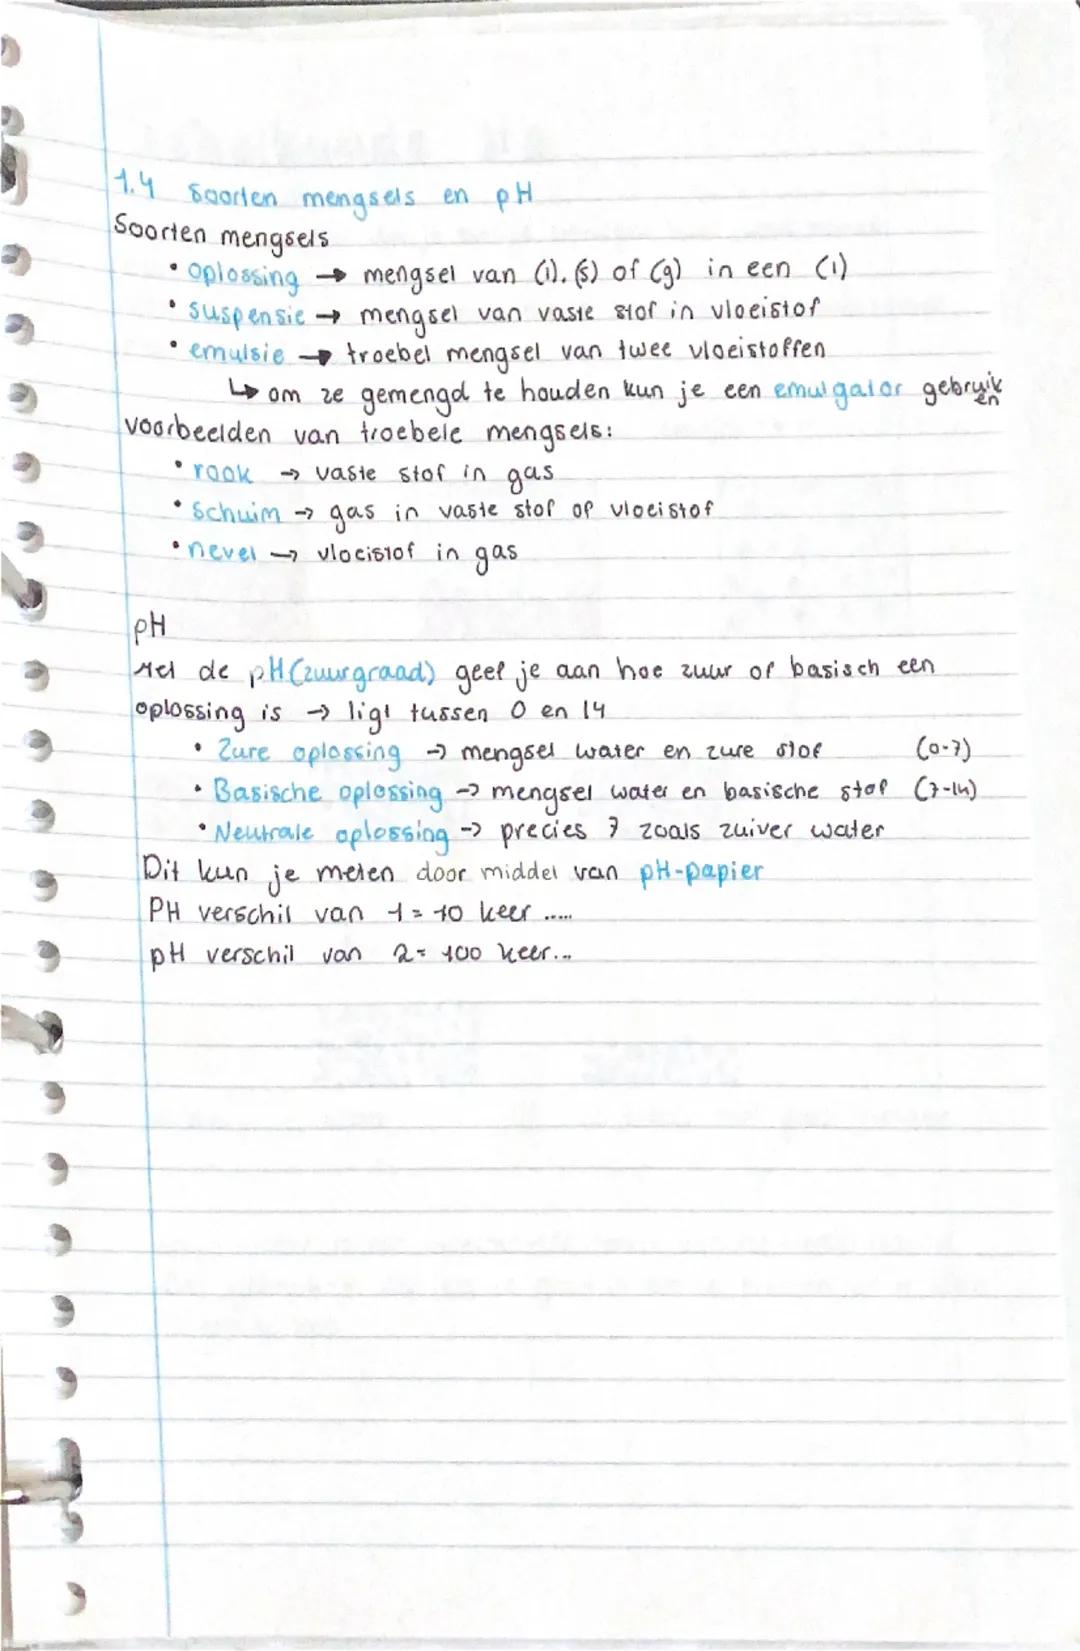 1.4 Soorten mengsels en pH
Soorten mengsels
• Oplossing → mengsel van (l). (s) of (g) in een (l)
• suspensie → mengsel van vaste stof in vloeistof
• emulsie → troebel mengsel van twee vloeistoffen
↳ om ze gemengd te houden kun je een emulgator gebruiken
voorbeelden van troebele mengsels:
• rook → vaste stof in gas
• Schuim → gas in vaste stof of vloeistof
• nevel → vloeistof in gas
pH
Met de pH (zuurgraad) geef je aan hoe zuur of basisch een
oplossing is → ligt tussen 0 en 14
• Zure oplossing → mengsel water en zure stof (0-7)
• Basische oplossing → mengsel water en basische stof (7-14)
• Neutrale oplossing → precies 7 zoals zuiver water
Dit kun je meten door middel van pH-papier
PH verschil van 1 = 10 keer .....
pH verschil van 2 = 100 keer...